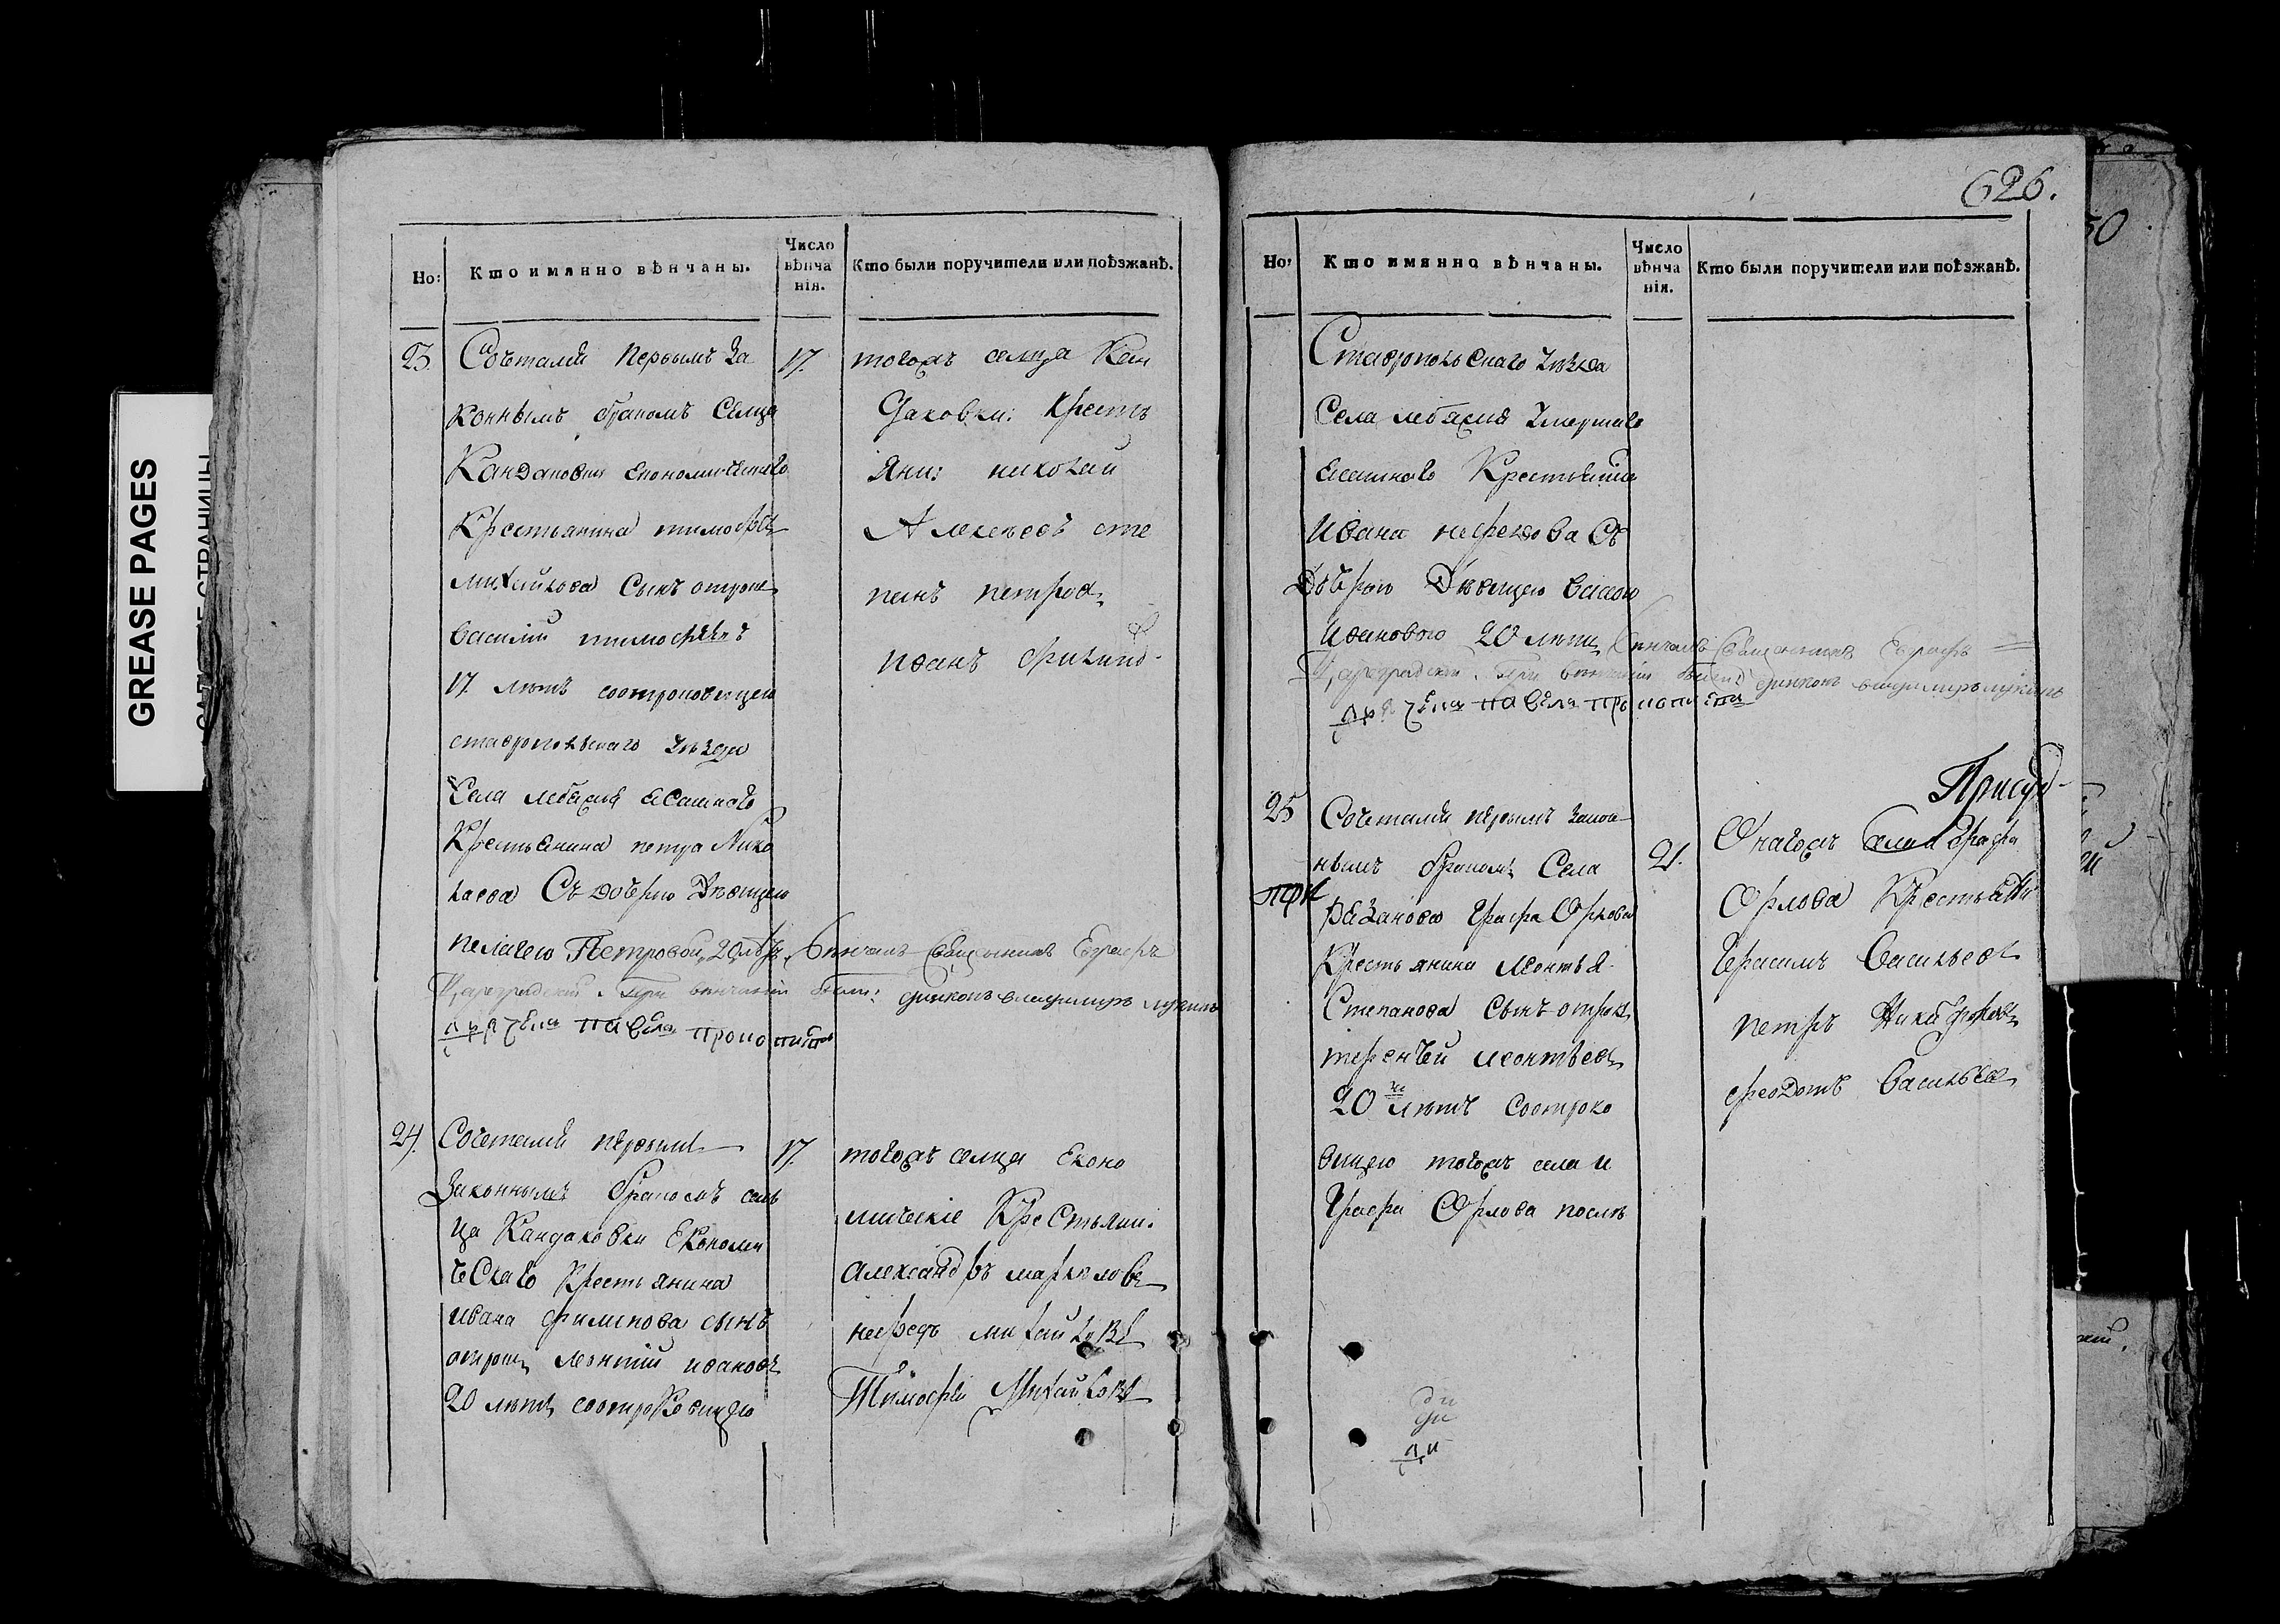 GREASE PAGES
626.
Но:
Кто имянно вѣнчаны.
Число вѣнча нія.
Кто были поручители или поѣзжанѣ.
23.
Сочетали первымъ за
коннымъ бракомъ Селца
Кандаковки економическаго
Крестьянина тимофея
михайлова Сынъ отрокъ
василий тимофѣевъ
17 лѣтъ соотроковицею
ставропольскаго уѣзда
Села лебяжья ясашнаго
Крестьянина петра Нико
лаева Съ дочерью дѣвицею
пелагею Петровой 20 лѣтъ. Вѣнчалъ Священникъ Евграфъ
Цареградский. При венчании были: диаконъ владимиръ лукинъ
17.
тогожъ селца Кан
даковки: Кресть
яни: николай
Алексеевъ сте
панъ петровъ
иванъ филипо
24.
Сочетали первымъ
Законнымъ бракомъ сель
ца Кандаковки Економи
ческаго Крестьянина
ивана филипова сынъ
отрокъ леонтий ивановъ
20 лѣтъ соотроковицею
17.
тогожъ селца Еконо
мическіе Крестьяни:
Александръ маркеловъ
нефедъ михайловъ
Тимофей Михайловъ
Но:
Кто имянно вѣнчаны.
Число вѣнча нія.
Кто были поручители или поѣзжанѣ.
Ставропольскаго уѣзда
Села лебяжья умершаго
ясашнаго Крестьянина
ивана нефедова Съ
дочерью дѣвицею
ивановою 20 лѣтъ Вѣнчалъ Священникъ Евграфъ
Цареградский. При венчании были: диаконъ владимиръ лукинъ
25
Сочетали первымъ закон
нымъ бракомъ Села
Рязанова Графа Орлова
Крестьянина леонтья
Степанова Сынъ отрокъ
терентей леонтьевъ
20 лѣтъ соотроко
вицею тогожъ села и
Графа Орлова послѣ
21.
Онагожъ села Графа
Орлова Крестьяни
Герасимъ Васильевъ
петръ Никифоровъ
феодотъ Васильевъ